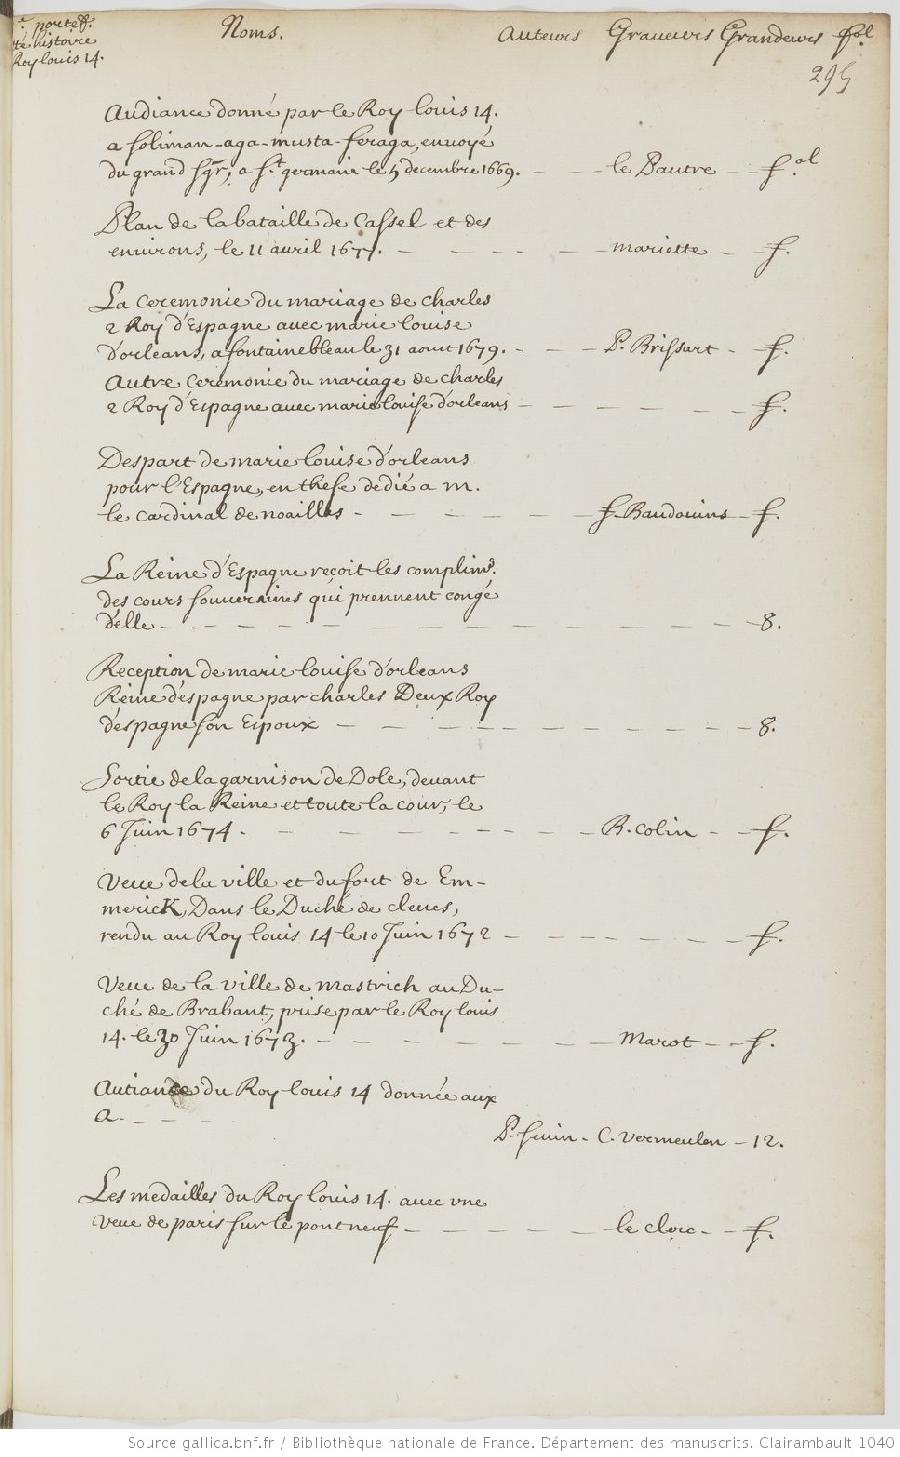 e. poutef.
té histoire
Roy louis 14.
Noms. Auteurs Graveurs Grandeurs fol.
295
Audiance donné par le Roy louis 14.
a soliman-aga-musta-feraga, envoyé
du grand sgr; a st. germain le 5 decembre 1669. — — le Pautre — fol.
Plan de la bataille de Cassel et des
environs, le 11 avril 1677. — — — — — mariette — f.
La ceremonie du mariage de charles
2 Roy d'Espagne avec marie louise
d'orleans, a fontainebleau le 31 aout 1679. — — — P. Brissart — f.
Autre ceremonie du mariage de charles
2 Roy d'Espagne avec marie louise d'orleans — — — — — — f.
Despart de marie louise d'orleans
pour l'Espagne, en these dedié a m.
le cardinal de noailles — — — — — f. Baudouins — f.
La Reine d'Espagne reçoit les complims.
des cours souveraines qui prennent congé
d'elle — — — — — — — — — — — — 8.
Reception de marie louise d'orleans
Reine d'espagne par charles Deux Roy
d'espagne son Espoux — — — — — — — — — — 8.
Sortie de la garnison de Dole, devant
le Roy la Reine et toute la cour, le
6 Juin 1674. — — — — — — — R. colin — — f.
Veue de la ville et du fort de Em-
merick, Dans le Duché de cleves,
rendu au Roy louis 14 le 10 Juin 1672 — — — — — — — f.
Veue de la ville de mastrich au Du-
ché de Brabant, prise par le Roy louis
14. le 30 Juin 1673. — — — — — — — Marot — — f.
Autiance du Roy louis 14 donnée aux
a. — — —
P. Sevin — C. vermeulen — 12.
Les medailles du Roy louis 14. avec vne
veue de paris sur le pont neuf — — — — — le clerc — — f.
Source gallica.bnf.fr / Bibliothèque nationale de France. Département des manuscrits. Clairambault 1040